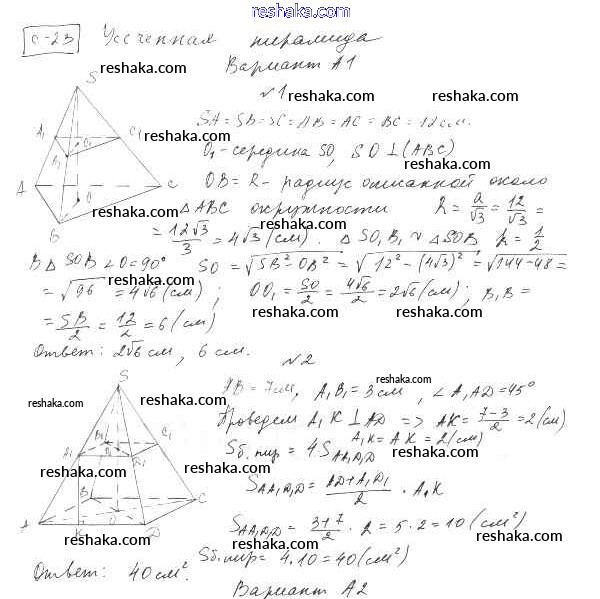 www.
reshaka.com
С-23 Усеченная пирамида
reshaka.com
Вариант А1
№1
SA = SB = SC = AB = AC = BC = 12 см.
O₁ - середина SO, SO ⊥ (ABC)
OB = R - радиус описанной около
△ABC окружности R = a/√3 = 12/√3 =
= 12√3/3 = 4√3 (см). △SO₁B₁ ~ △SOB k = 1/2
В △SOB ∠O = 90° SO = √(SB² - OB²) = √(12² - (4√3)²) = √(144 - 48) =
= √96 = 4√6 (см); OO₁ = SO/2 = 4√6/2 = 2√6 (см); B₁B =
= SB/2 = 12/2 = 6 (см)
Ответ: 2√6 см, 6 см.
№2
AB = 7см, A₁B₁ = 3 см, ∠A₁AD = 45°
Проведем A₁K ⊥ AD => AK = (7-3)/2 = 2 (см)
A₁K = AK = 2 (см)
Sб.пир = 4 S AA₁D₁D
S AA₁D₁D = (AD + A₁D₁)/2 · A₁K
S AA₁D₁D = (3+7)/2 · 2 = 5 · 2 = 10 (см²)
Sб.пир = 4 · 10 = 40 (см²)
Ответ: 40 см².
Вариант А2